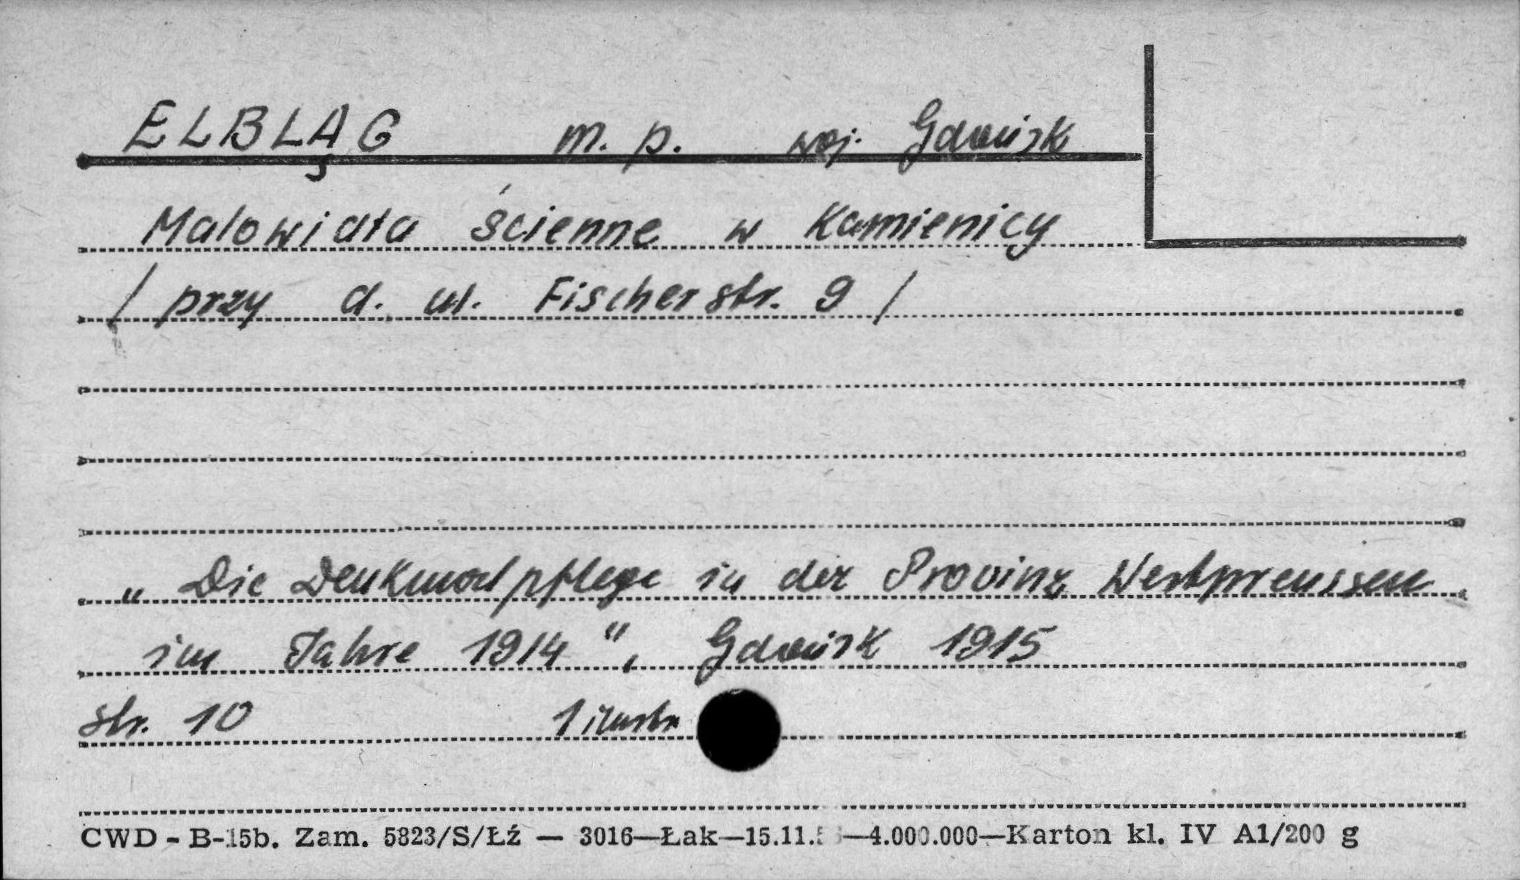 ELBLĄG m. p. woj. Gdańsk
Malowidła ścienne w Kamienicy
/ przy d. ul. Fischerstr. 9 /
„ Die Denkmalpflege in der Provinz Westpreussen
im Jahre 1914 ", Gdańsk 1915
str. 10 1 ilustr.
CWD - B-15b. Zam. 5823/S/Łź — 3016—Łak—15.11.5 —4.000.000—Karton kl. IV A1/200 g